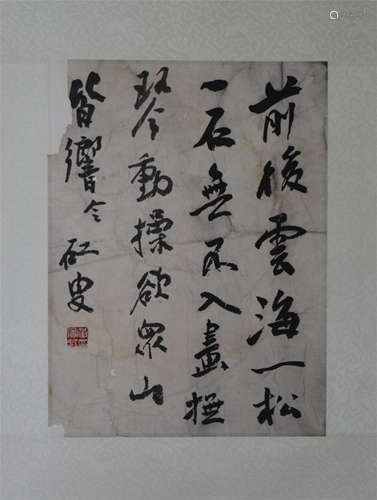 前後雲海一松
一石無不入畫撫
琴動操欲眾山
皆響令
砭叟